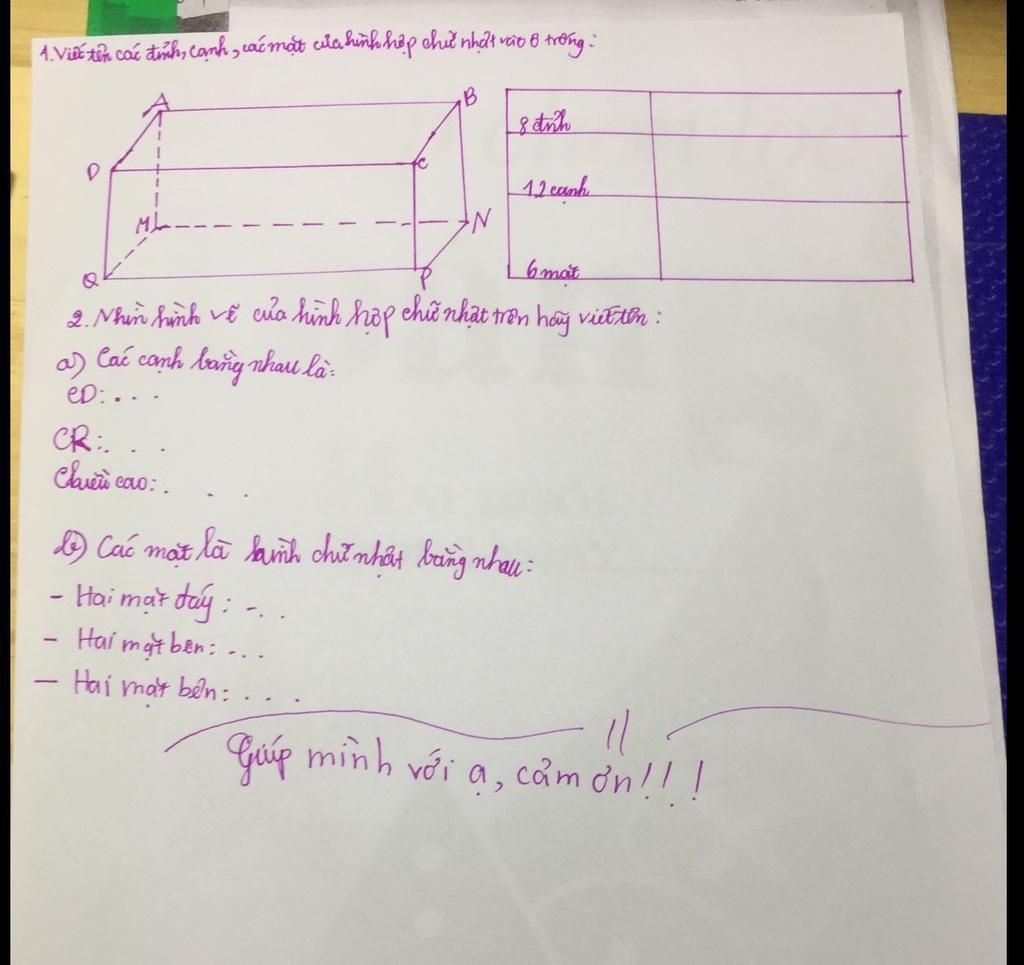 1. Viết tên các đỉnh, cạnh, các mặt của hình hộp chữ nhật vào ô trống:
A
B
D
C
M
N
Q
P
8 đỉnh
12 cạnh
6 mặt
2. Nhìn hình vẽ của hình hộp chữ nhật trên hãy viết tên:
a) Các cạnh bằng nhau là:
CD: . . .
CR: . . .
Chiều cao: . . .
b) Các mặt là hình chữ nhật bằng nhau:
- Hai mặt đáy: - . .
- Hai mặt bên: - . .
- Hai mặt bên: . . .
Giúp mình với ạ, cảm ơn!!!